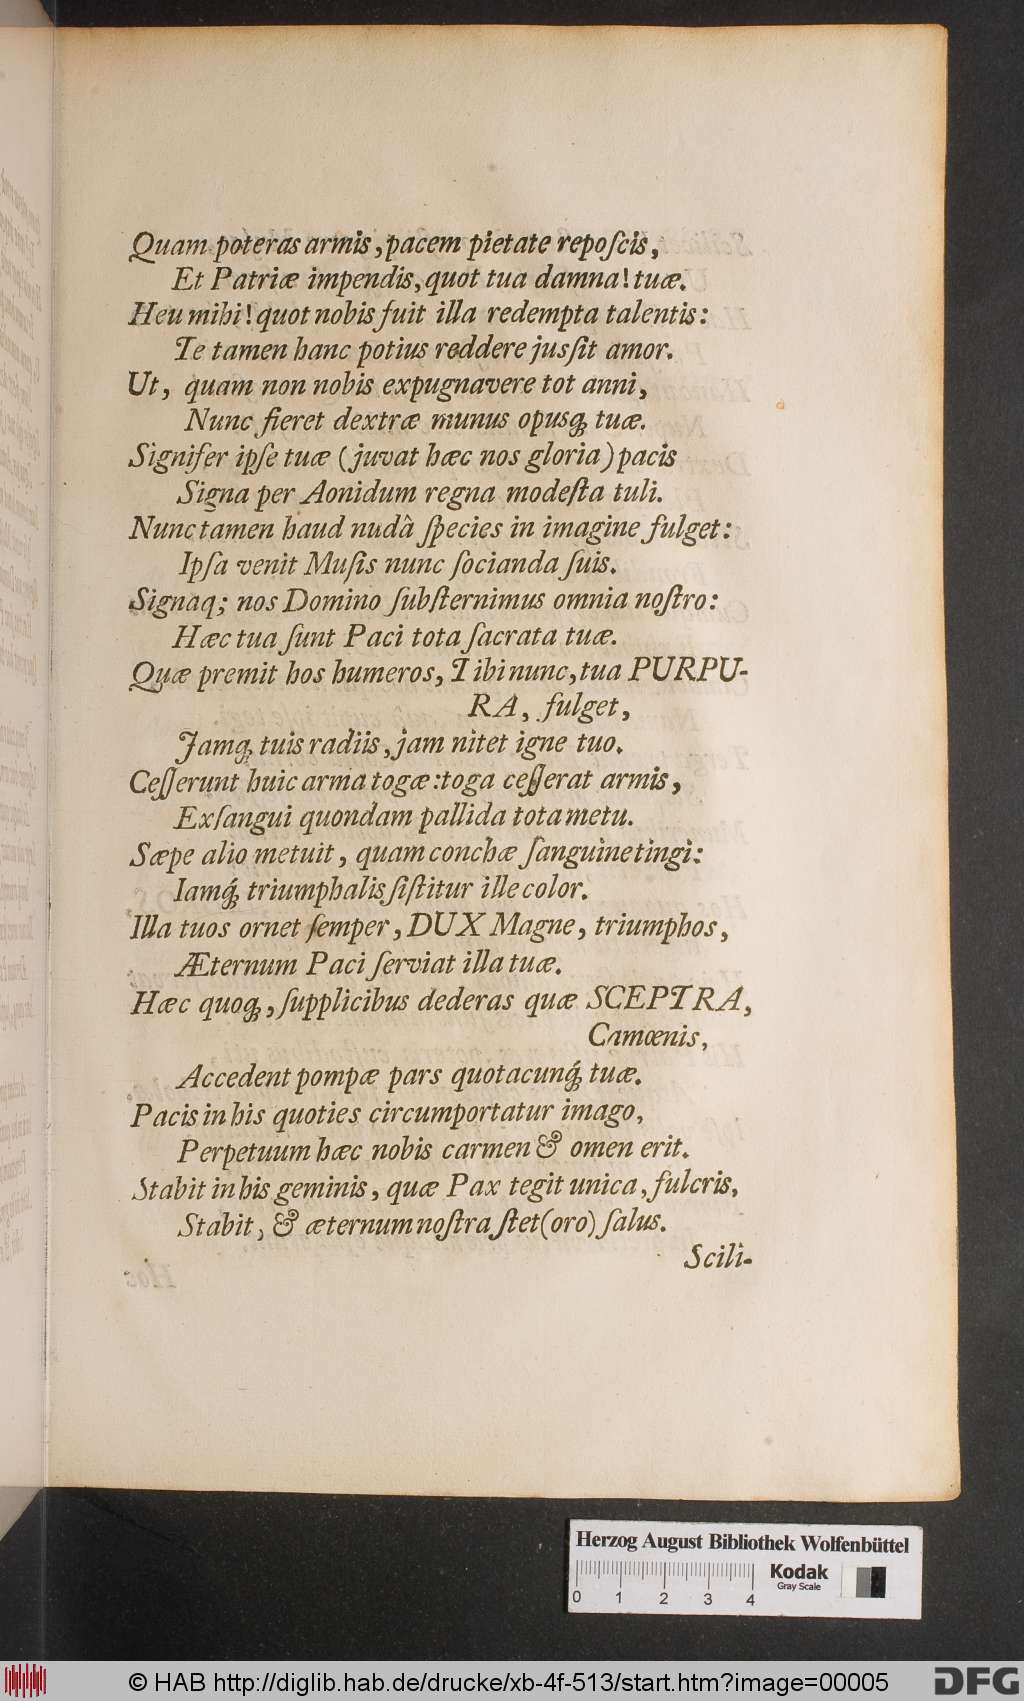 Quam poteras armis, pacem pietate repoſcis,
Et Patriæ impendis, quot tua damna! tuæ.
Heu mihi! quot nobis fuit illa redempta talentis:
Te tamen hanc potius reddere jusſit amor.
Ut, quam non nobis expugnavere tot anni,
Nunc fieret dextræ munus opusq; tuæ.
Signifer ipſe tuæ (juvat hæc nos gloria) pacis
Signa per Aonidum regna modeſta tuli.
Nunc tamen haud nudâ ſpecies in imagine fulget:
Ipſa venit Muſis nunc ſocianda ſuis.
Signaq; nos Domino ſubſternimus omnia noſtro:
Hæc tua ſunt Paci tota ſacrata tuæ.
Quæ premit hos humeros, Tibi nunc, tua PURPU-
RA, fulget,
Jamq; tuis radiis, jam nitet igne tuo.
Ceſſerunt huic arma togæ: toga ceſſerat armis,
Exſangui quondam pallida tota metu.
Sæpe alio metuit, quam conchæ ſanguine tingi:
Iamq́; triumphalis ſiſtitur ille color.
Illa tuos ornet ſemper, DUX Magne, triumphos,
Æternum Paci ſerviat illa tuæ.
Hæc quoq;, ſupplicibus dederas quæ SCEPTRA,
Camœnis,
Accedent pompæ pars quotacunq́; tuæ.
Pacis in his quoties circumportatur imago,
Perpetuum hæc nobis carmen & omen erit.
Stabit in his geminis, quæ Pax tegit unica, fulcris,
Stabit, & æternum noſtra ſtet (oro) ſalus.
Scili-
Herzog August Bibliothek Wolfenbüttel
Kodak
Gray Scale
0 1 2 3 4
© HAB http://diglib.hab.de/drucke/xb-4f-513/start.htm?image=00005
DFG